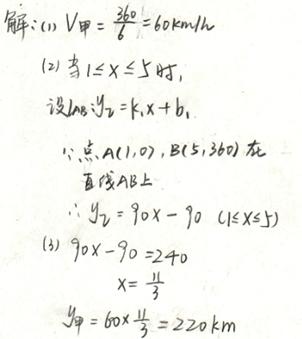 解:(1) V甲 = 360/6 = 60km/h
(2) 当1≤x≤5时,
设lAB:y乙=k₁x+b₁
∵点A(1,0),B(5,360)在
直线AB上
∴ y乙=90x-90 (1≤x≤5)
(3) 90x-90=240
x= 11/3
y甲=60×11/3=220km